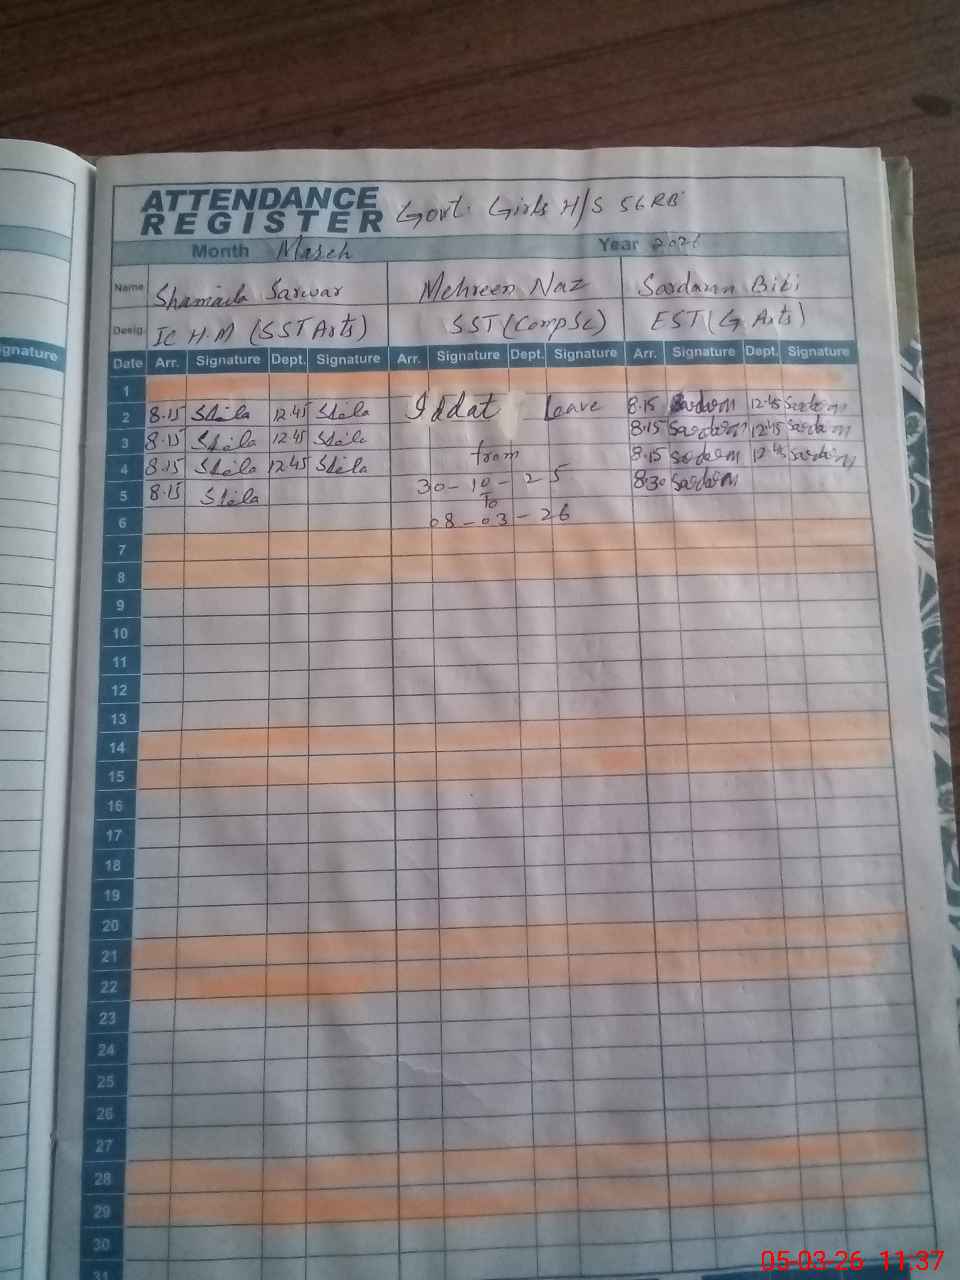 ATTENDANCE
REGISTER
Govt. Girls H/S 56 RB
Month March Year 2026
Name Shamaila Sarwar Mehreen Naz Sardaran Bibi
Desig. Ic H.M (SST Arts) SST (Comp Sc) EST (G Arts)
gnature
Date Arr. Signature Dept. Signature Arr. Signature Dept. Signature Arr. Signature Dept. Signature
1
2 8.15 12.45 Iddat Leave 8.15 12.45
3 8.15 12.45 8.15 12.45
4 8.15 12.45 from 8.15 12.45
5 8.15 30-10-25 8.30
To
6 08-03-26
7
8
9
10
11
12
13
14
15
16
17
18
19
20
21
22
23
24
25
26
27
28
29
30
31
05-03-26 11:37